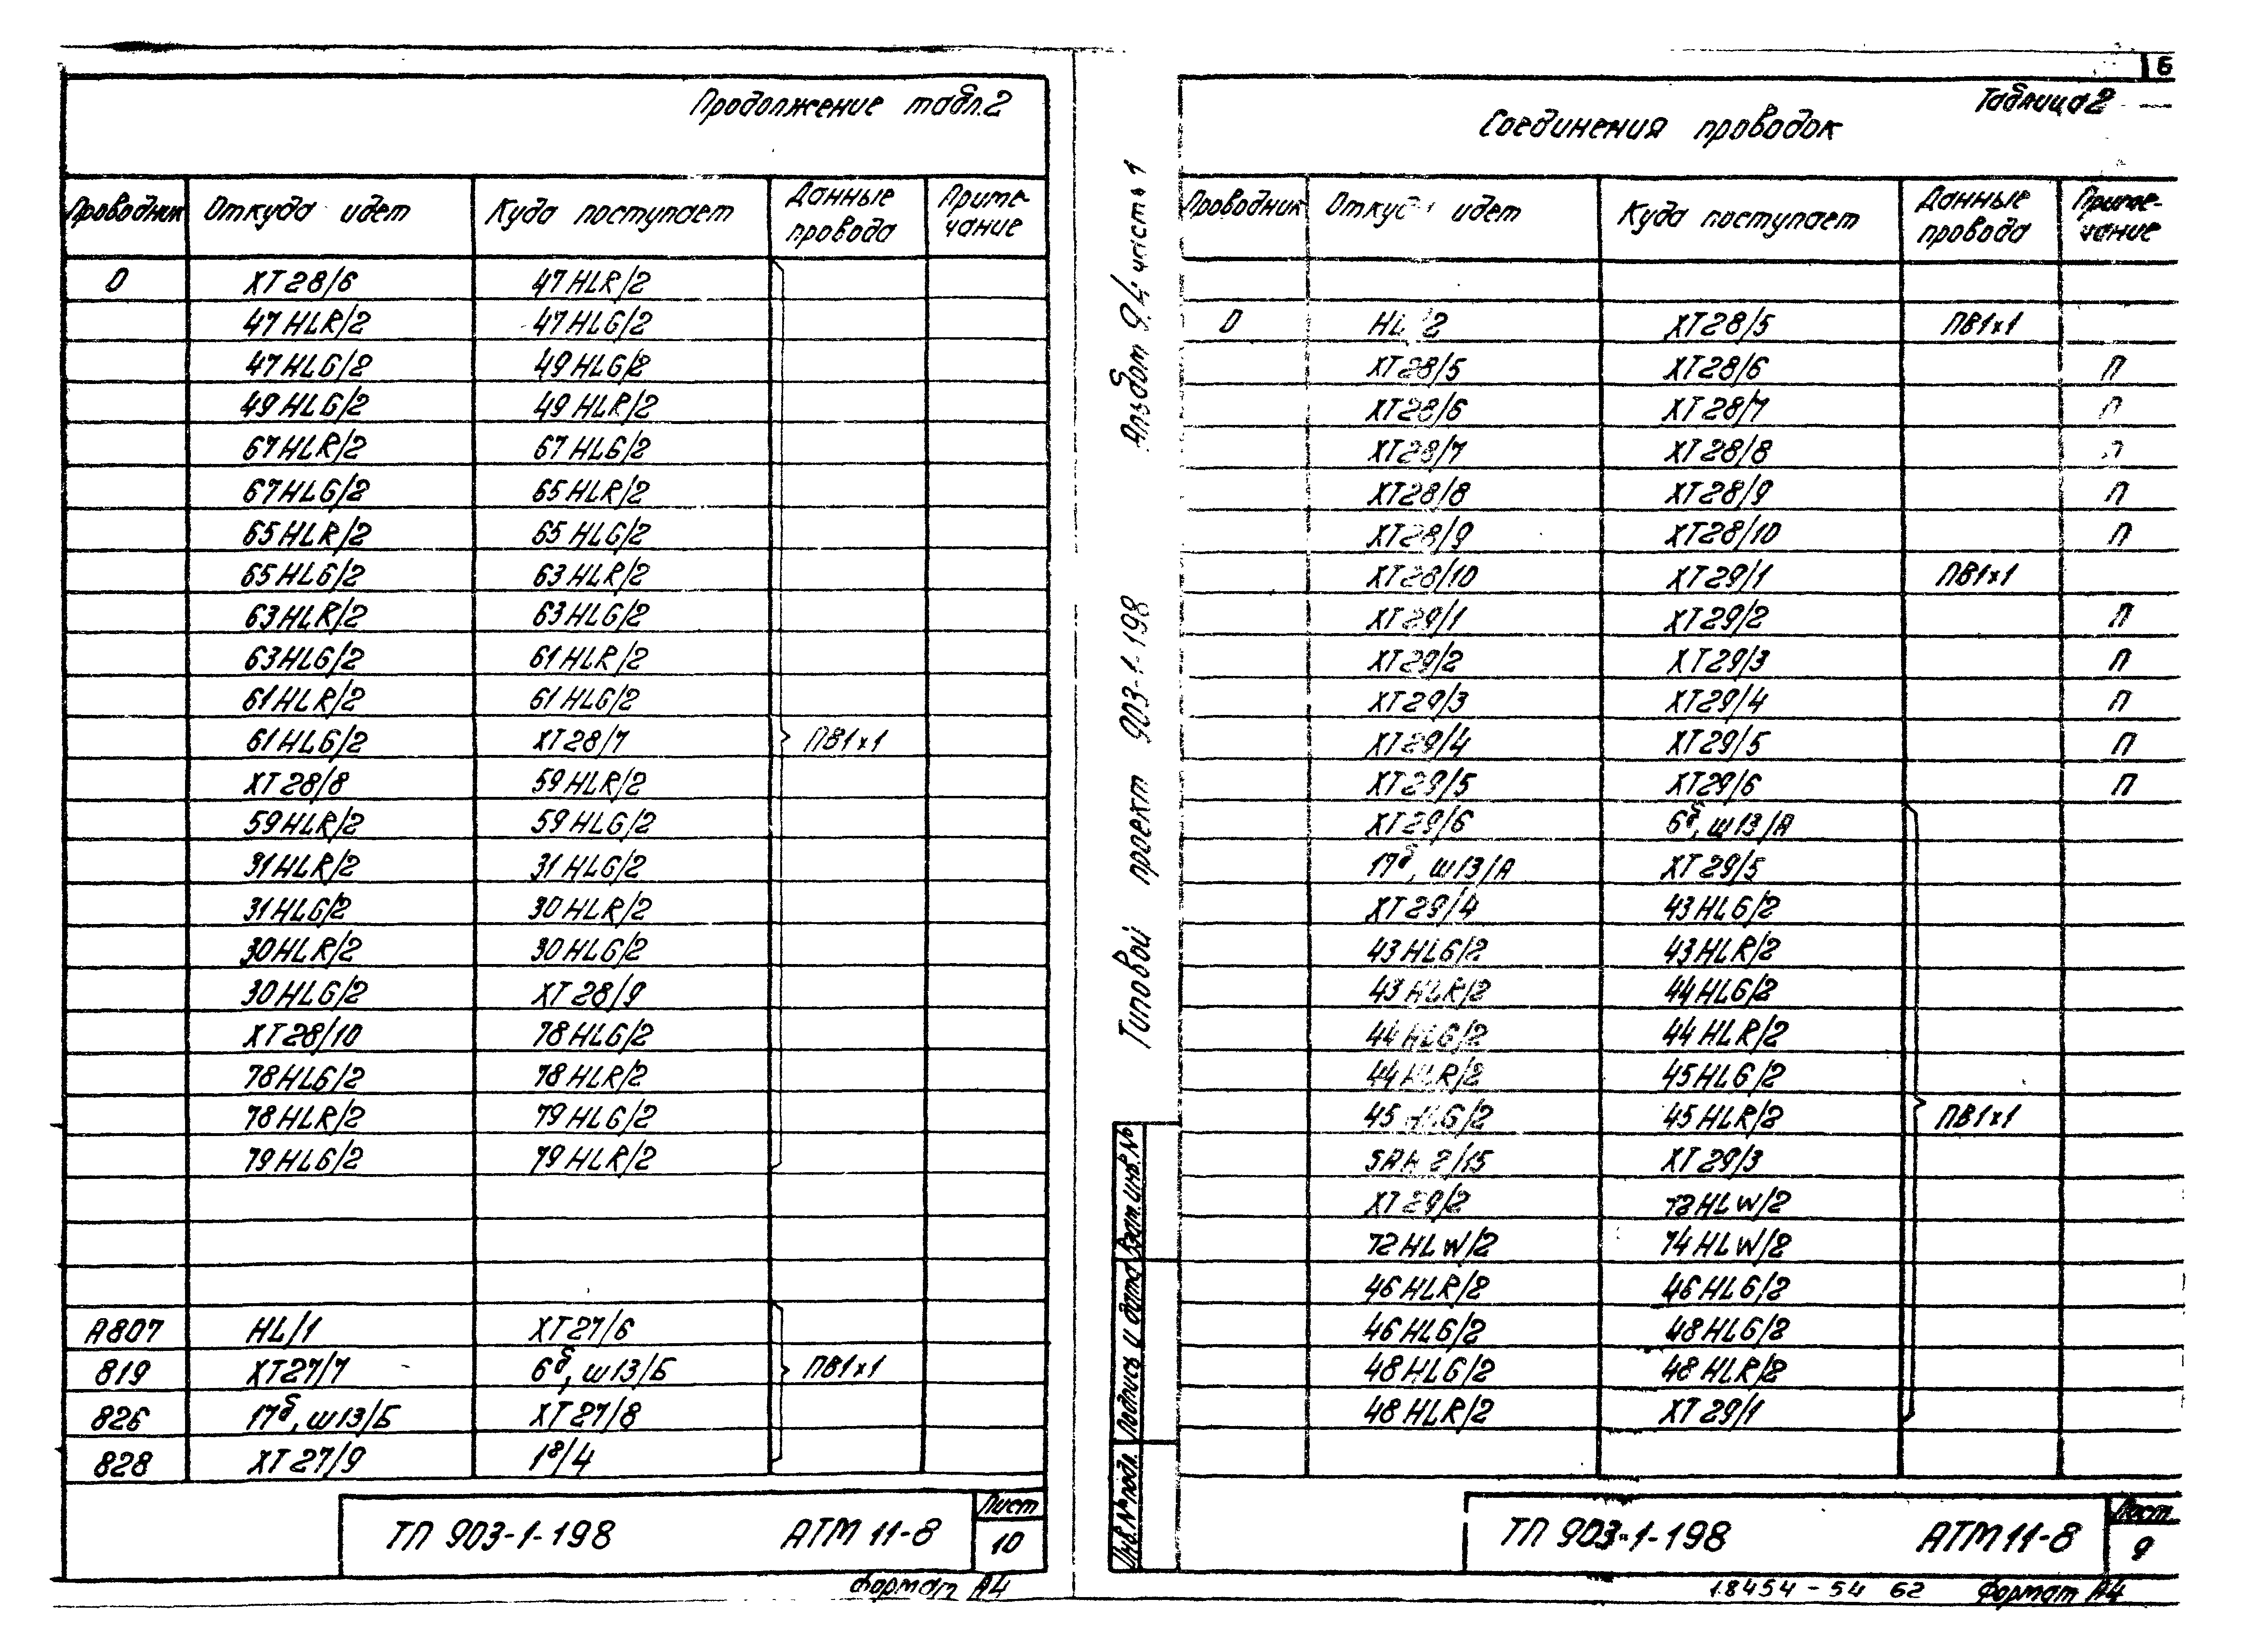 Продолжение табл.2
Проводник Откуда идет Куда поступает Данные провода Приме-чание
0 ХТ28/6 47HLR/2
47HLR/2 47HLG/2
47HLG/2 49HLG/2
49HLG/2 49HLR/2
67HLR/2 67HLG/2
67HLG/2 65HLR/2
65HLR/2 65HLG/2
65HLG/2 63HLR/2
63HLR/2 63HLG/2
63HLG/2 61HLR/2
61HLR/2 61HLG/2
61HLG/2 ХТ28/7 ПВ1х1
ХТ28/8 59HLR/2
59HLR/2 59HLG/2
31HLR/2 31HLG/2
31HLG/2 30HLR/2
30HLR/2 30HLG/2
30HLG/2 ХТ28/9
ХТ28/10 78HLG/2
78HLG/2 78HLR/2
78HLR/2 79HLG/2
79HLG/2 79HLR/2
А807 HL/1 ХТ27/6
819 ХТ27/7 6б, ш13/Б ПВ1х1
826 17б, ш13/Б ХТ27/8
828 ХТ27/9 1в/4
ТП 903-1-198 АТМ 11-8 Лист 10
Формат А4
Альбом 9.4 часть 1
Типовой проект 903-1-198
Взам.инв.№
Подпись и дата
Инв.№ подл.
6
Таблица 2
Соединения проводок
Проводник Откуда идет Куда поступает Данные провода Приме-чание
0 HL/2 ХТ28/5 ПВ1х1
ХТ28/5 ХТ28/6 П
ХТ28/6 ХТ28/7 П
ХТ28/7 ХТ28/8 П
ХТ28/8 ХТ28/9 П
ХТ28/9 ХТ28/10 П
ХТ28/10 ХТ29/1 ПВ1х1
ХТ29/1 ХТ29/2 П
ХТ29/2 ХТ29/3 П
ХТ29/3 ХТ29/4 П
ХТ29/4 ХТ29/5 П
ХТ29/5 ХТ29/6 П
ХТ29/6 6б, ш13/А
17б, ш13/А ХТ29/5
ХТ29/4 43HLG/2
43HLG/2 43HLR/2
43HLR/2 44HLG/2
44HLG/2 44HLR/2
44HLR/2 45HLG/2
45HLG/2 45HLR/2 ПВ1х1
ХТ29/3
ХТ29/2 72HLW/2
72HLW/2 74HLW/2
46HLR/2 46HLG/2
46HLG/2 48HLG/2
48HLG/2 48HLR/2
48HLR/2 ХТ29/1
ТП 903-1-198 АТМ 11-8 Лист 9
18454-54 62 Формат А4